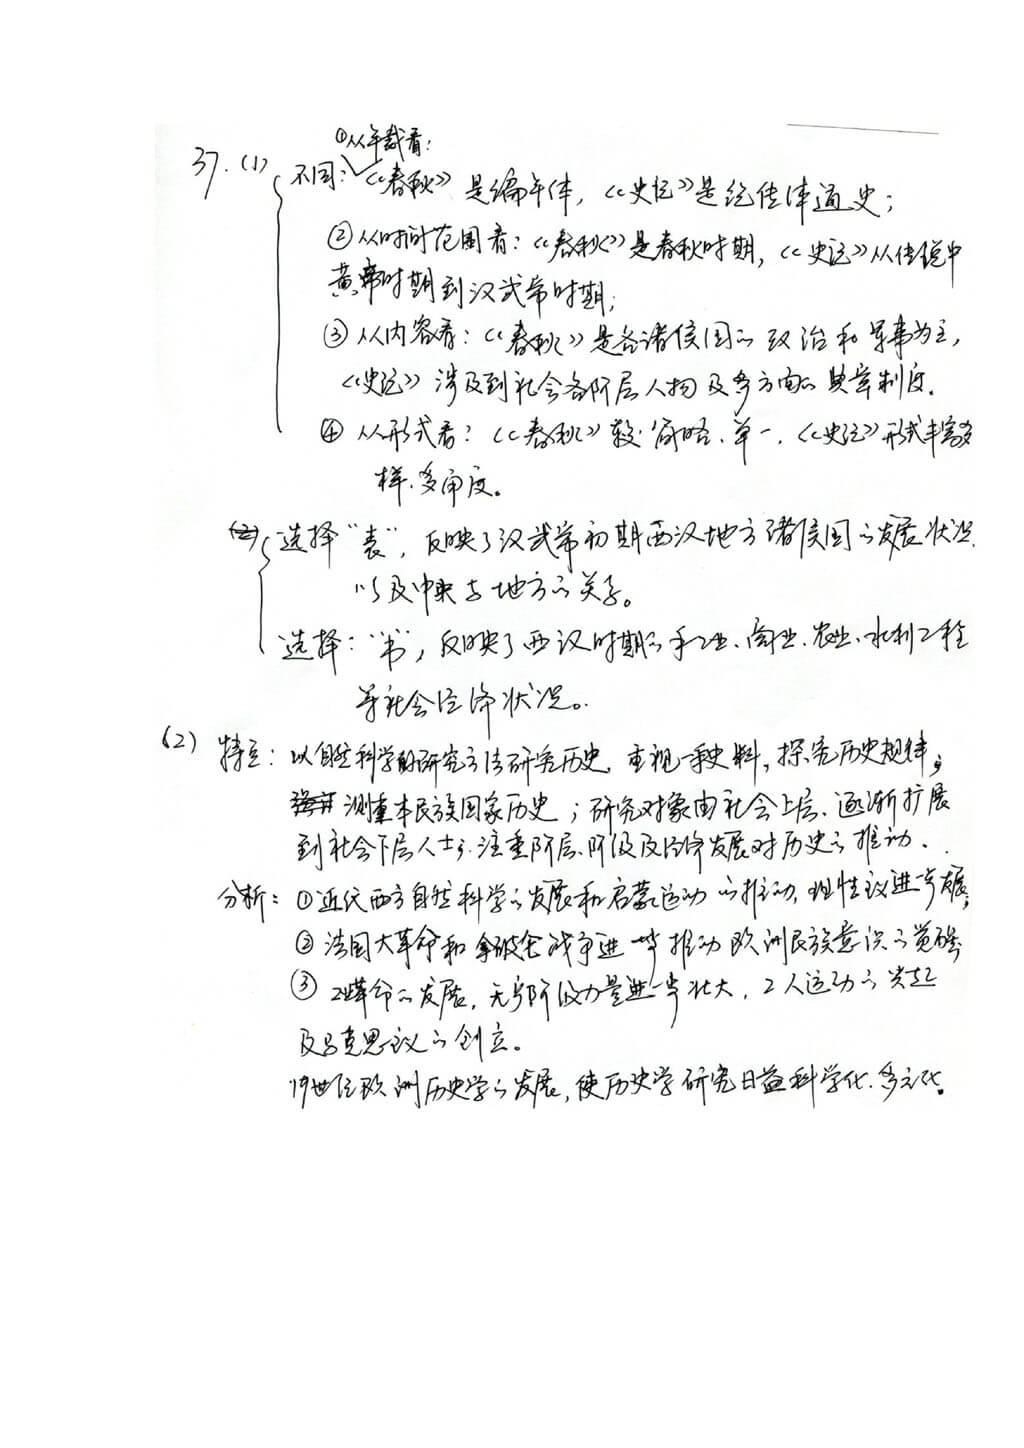 ①从年载看:
37.(1) 不同:《春秋》是编年体,《史记》是纪传体通史;
②从时间范围看:《春秋》是春秋时期,《史记》从传说中
黄帝时期到汉武帝时期;
③从内容看:《春秋》是各诸侯国的政治和军事为主,
《史记》涉及到社会各阶层人物及多方面的典章制度.
④从形式看:《春秋》较简略、单一,《史记》形式丰富多
样、多角度。
选择"表",反映了汉武帝初期西汉地方诸侯国的发展状况
以及中央与地方的关系。
选择:"书",反映了西汉时期的手工业、商业、农业、水利工程
等社会经济状况。
(2) 特点:以自然科学的研究方法研究历史,重视一手史料,探究历史规律;
侧重本民族国家历史;研究对象由社会上层、逐渐扩展
到社会下层人士;注重阶层、阶级及经济发展对历史的推动.
分析:①近代西方自然科学的发展和启蒙运动的推动,理性主义进一步发展;
②法国大革命和拿破仑战争进一步推动欧洲民族意识的觉醒
③工业革命的发展,无产阶级力量进一步壮大,工人运动的兴起
及马克思主义的创立。
19世纪欧洲历史学的发展,使历史学研究日益科学化、多元化。